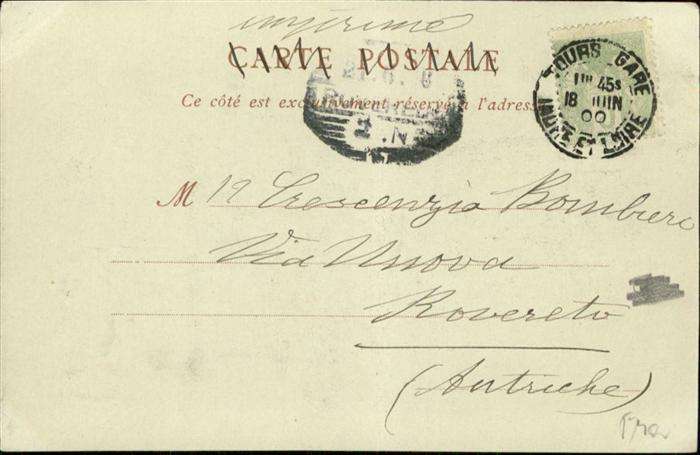 imprimé
CARTE POSTALE
Ce côté est exclusivement réservé à l'adresse
TOURS-GARE
45s
18 JUIN
00
INDRE ET LOIRE
M 19 Crescenzia Bombieri
Via Nuova
Rovereto
(Autriche)